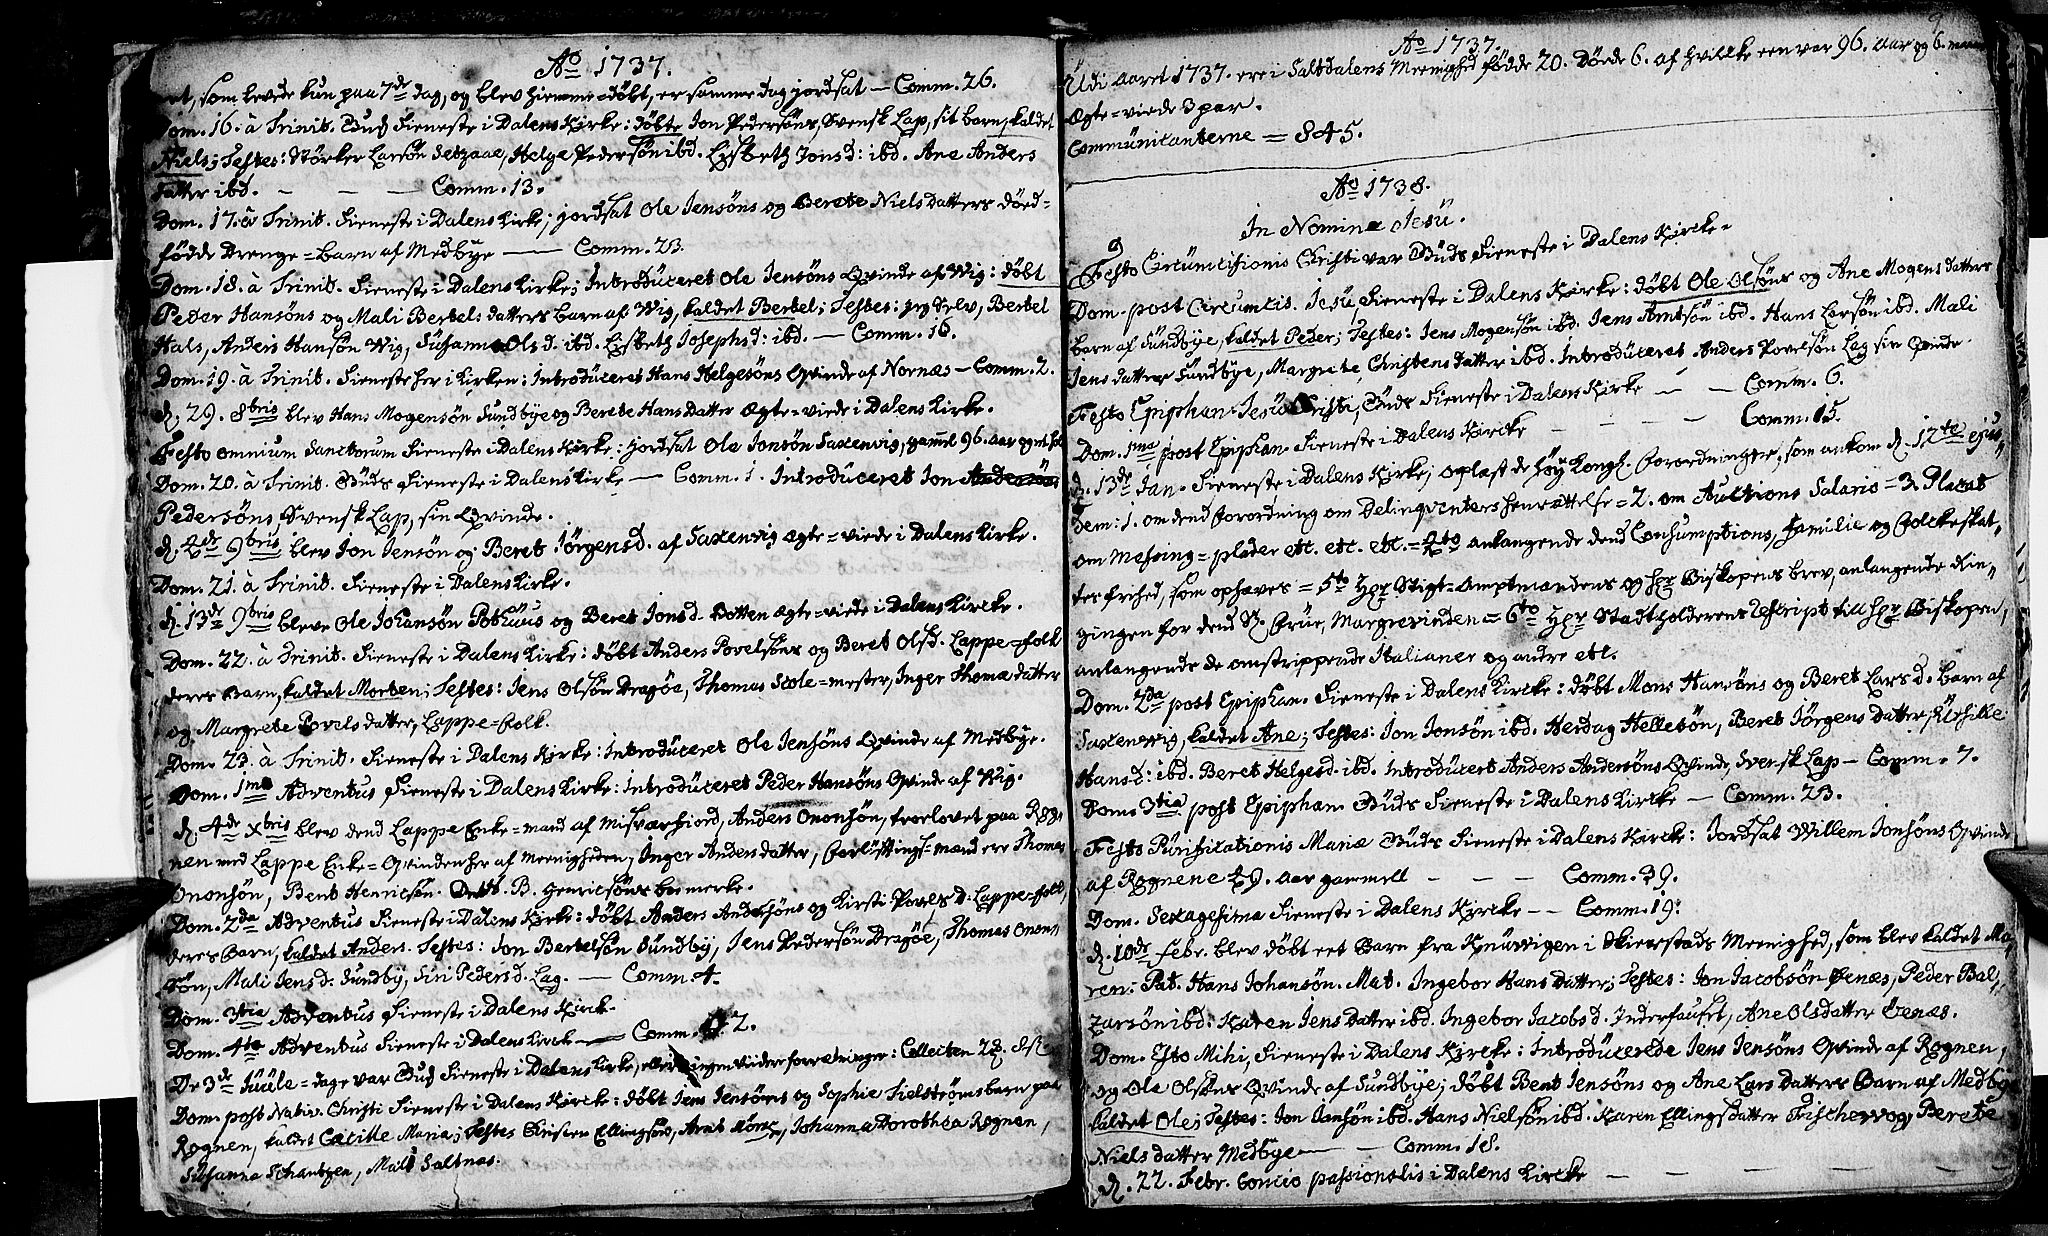 Ao 1737.
et, som levede kun paa 7de dag, og blev hiemme=døbt, er samme dag jordsat — Comm. 26.
Dom. 16. à Trinit. Guds Tieneste i Dalens Kirke: døbte Jon Pedersøns, Svensk Lap, sit barn, kaldet
Niels; Testes: Størker Larsøn Setzaae, Helge Pedersøn ibd. Lisbeth Jonsd: ibd. Ane Anders
datter ibd. — — — Comm. 13.
Dom. 17. à Trinit. Tieneste i Dalens Kirke; jordsat Ole Jensøns og Berete Nielsdatters død=
fødde Drenge=barn af Medbye — Comm. 23.
Dom. 18. à Trinit. Tieneste i Dalens Kirke; Introduceret Ole Jensøns Qvinde af Wig: døbt
Peder Hansøns og Mali Bertels datters barn af Wig, kaldet Bertel; Testes: jeg selv, Bertel
Hals, Anders Hansøn Wig, Susanna Olsd. ibd. Lisbeth Josephsd: ibd. — Comm. 16.
Dom. 19. à Trinit. Tieneste her i Kirken: Introduceret Hans Helgesøns Qvinde af Nornæs — Comm. 2.
d. 29. 8bris blev Hans Mogensøn Sundbye og Berete Hans Datter ægte=viede i Dalens Kirke.
Festo omnium Sanctorum Tieneste i Dalens Kirke; jordsat Ole Jonsøn Saxenvig, gamel 96. aar og et hal
Dom. 20. à Trinit. Guds Tieneste i Dalens Kirke — Comm. 1. Introduceret Jon
Pedersøns, Svensk Lap, sin Qvinde.
d. 2de 9bris blev Jon Jensøn og Beret Jörgensd. af Saxenvig ægte=viede i Dalens Kirke.
Dom. 21. à Trinit. Tieneste i Dalens Kirke.
d. 13de 9bris bleve Ole Johansøn Pothuus og Beret Jonsd. Botten ægte=viede i Dalens Kircke.
Dom. 22. à Trinit. Tieneste i Dalens Kirke: døbt Anders Povelsøns og Beret Olsd. Lappe=folk
deres Barn, kaldet Morten; Testes: Jens Olsøn Dragøe, Thomas Skole=mester, Inger Thomædatter
og Margrete Povelsdatter, Lappe=folk.
Dom. 23. à Trinit. Tieneste i Dalens Kirke: Introduceret Ole Jensøns Qvinde af Medbye.
Dom. 1ma Adventus Tieneste i Dalens Kirke: Introduceret Peder Hansøns Qvinde af Wig.
d. 4de xbris blev dend Lappe Enke=mand af Misværfiord, Anders Ononsøn, troelovet paa Rog=
nen med Lappe Enke=Qvinden her af Meenigheden, Inger Andersdatter, forløftings=mænd ere Thomas
Ononsøn, Bent Henricsøn. B. Henricsøns bomerke.
Dom. 2da Adventus Tieneste i Dalens Kirke: døbt Anders Andersøns og Kirsti Povels D. Lappe=folk,
deres Barn, kaldet Anders. Testes: Jon Bertelsøn Sundby, Jens Pedersøn Dragøe, Thomas Onon=
søn, Mali Jens d. Sundby, Siri Pedersd. Lag. — Comm. 4.
Dom. 3tia Adventus Tieneste i Dalens Kirk.
Dom. 4ta Adventus Tieneste i Dalens Kirck — Comm. 2.
De 3de Juule=dage var Guds Tieneste i Dalens Kirke, ellers ingen viider forretninger: Collecten 28. ß
Dom. post Nativ. Christi Tieneste i Dalens Kircke: døbt Jens Jensøns og Sophie Fielstrøms barn paa
Rognen, kaldet Cæcilie Maria; Testes Christen Ellingsøn, Arnt, Johanna Dorothea Rognen,
Susanna Schantzen, Mali Saltnæs.
9
Ao 1737.
Udi aaret 1737. ere i Saltdalens Meenighed fødde 20. Døede 6. af hvilcke een var 96. aar og 6. maan
Ægte=viede 3 par.
Communicanterne = 845.
Ao 1738.
In Nomine Jesu.
Festo Circumcisionis Christi var Guds Tieneste i Dalens Kircke.
Dom. post Circumcis. Jesu, Tieneste i Dalens Kirke: døbt Ole Olsøns og Ane Mogens datters
barn af Sundbye, kaldet Peder; Testes: Jens Mogensøn ibd. Jens Arntsøn ibd. Hans Larsøn ibd. Mali
Jens datter Sundbye, Margrete Christens datter ibd. Introduceret Anders Povelsøn Lag sin Qvinde.
Festo Epiphan. Jesu Christi, Guds Tieneste i Dalens Kirke — — Comm. 6.
Dom. 1ma post Epiphan. Tieneste i Dalens Kircke — — — — Comm. 15.
d. 13de Jan. Tieneste i Dalens Kirke; oplæst de høy Kongl. Forordninger, som ankom d. 12te ejus=
dem: 1. om dend Forordning om Delinqventers henrættelse = 2. om Auctions Salario = 3. Placat
om Messing=plader etc. etc. etc. = 4to anlangende dend Consumptions, Familie og Folckeskat=
tes frihed, som ophæves = 5to Hr. Stigt=amptmandens og Hr. Biskopens brev, anlangende Rin=
gingen for dend Frue, Margrevinden = 6to Hr. Stadtholderens rescript till Hr. Biskopen,
anlangende de omstrippende Italianer og andre etc.
Dom. 2da post Epiphan. Tieneste i Dalens Kircke: døbt Mons Hansøns og Beret Lars d. barn af
Saxenvig, kaldet Ane; Testes: Jon Jonsøn ibd. Herdag Hellesøn, Beret Jörgens datter,
Hansd: ibd. Beret Helgesd. ibd. Introducert Anders Andersøns Qvinde, Svensk Lap — Comm. 7.
Dom. 3tia post Epiphan. Guds Tieneste i Dalens Kircke — Comm. 23.
Festo Purificationis Mariæ Guds Tieneste i Dalens Kircke: Jordsat Willem Jonsøns Qvinde
af Rognene 49. aar gammell — — — Comm. 39.
Dom. Sexagesima Tieneste i Dalens Kircke — — Comm. 19.
d. 10de Febr. blev døbt eet Barn fra Knævvigen i Skierstads Meenighed, som blev kaldet Ma=
ren. Pat. Hans Johansøn. Mat. Ingebor Hans Datter; Testes: Jon Jacobsøn Øenæs, Peder Bal=
zarsøn ibd. Karen Jens Datter ibd. Ingebor Jacobs d. Inderfauset, Ane Olsdatter Øenæs.
Dom. Esto Mihi, Tieneste i Dalens Kircke: Introducerede Jens Jensøns Qvinde af Rognen,
og Ole Olsøns Qvinde af Sundbye; døbt Bent Jensøns og Ane Lars Datters Barn af Medby
kaldet Ole; Testes: Jon Jensøn ibd. Hans Nielsøn ibd. Karen Ellings datter Fischevog, Berete
Niels datter Medbye — — Comm. 18.
d. 22. Febr. Concio passionalis i Dalens Kircke — — — — —